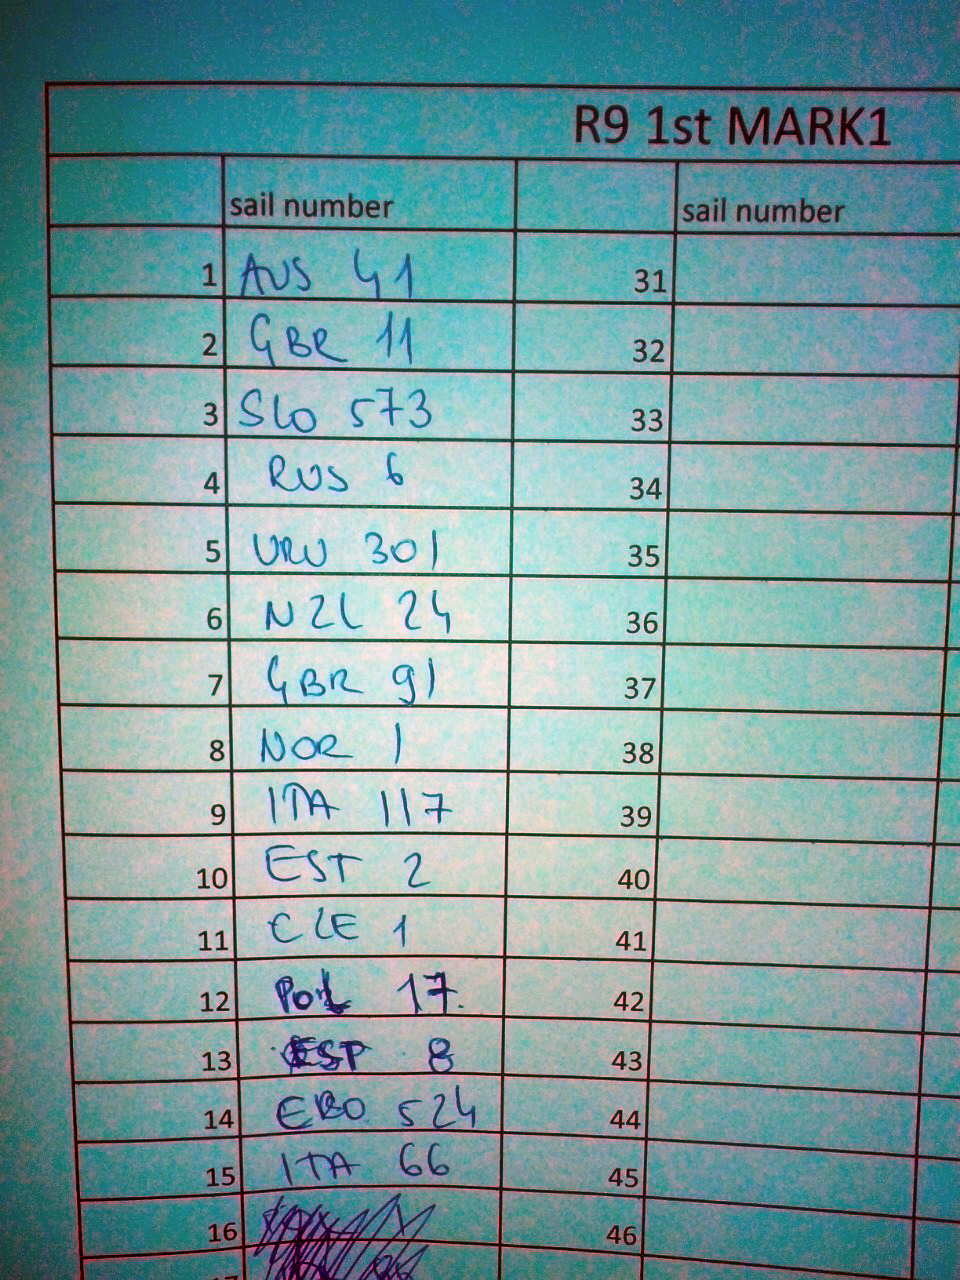 R9 1st MARK1
sail number sail number
1 AUS 41 31
2 GBR 11 32
3 SLO 573 33
4 RUS 6 34
5 URU 301 35
6 NZL 24 36
7 GBR 91 37
8 NOR 1 38
9 ITA 117 39
10 EST 2 40
11 CZE 1 41
12 POL 17. 42
13 ESP 8 43
14 524 44
15 ITA 66 45
16 46